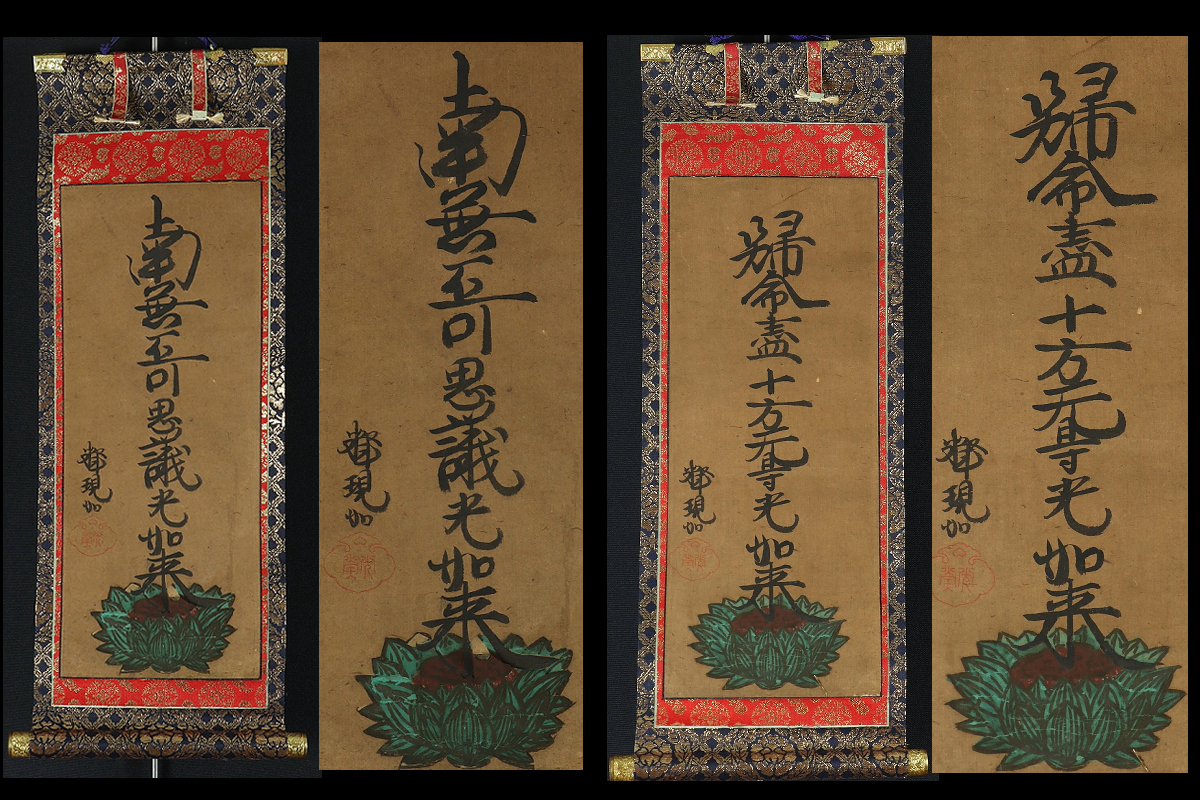 南無不可思議光如来
釋現如
南無不可思議光如来
釋現如
歸命盡十方无㝵光如来
釋現如
歸命盡十方无㝵光如来
釋現如